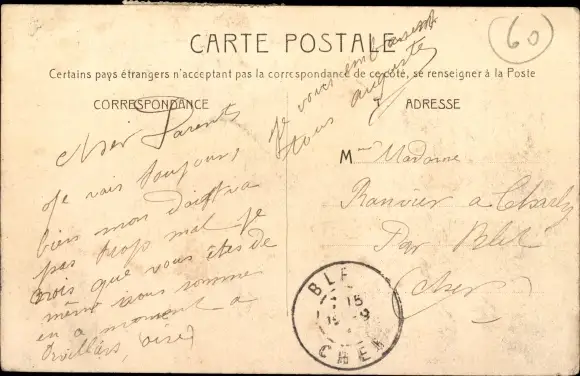 CARTE POSTALE
60
Certains pays étrangers n'acceptent pas la correspondance de ce côté, se renseigner à la Poste
CORRESPONDANCE
ADRESSE
Cher Parents
Je vais toujours
bien mon doigt va
pas trop mal je
crois que vous êtes de
même nous sommes
en a moment a
Orvillers, oise)
Je vous embrassent
tous auguste
M Madame
Ranvier a Charly
Par Blet
(Cher)
BLET
15
CHER